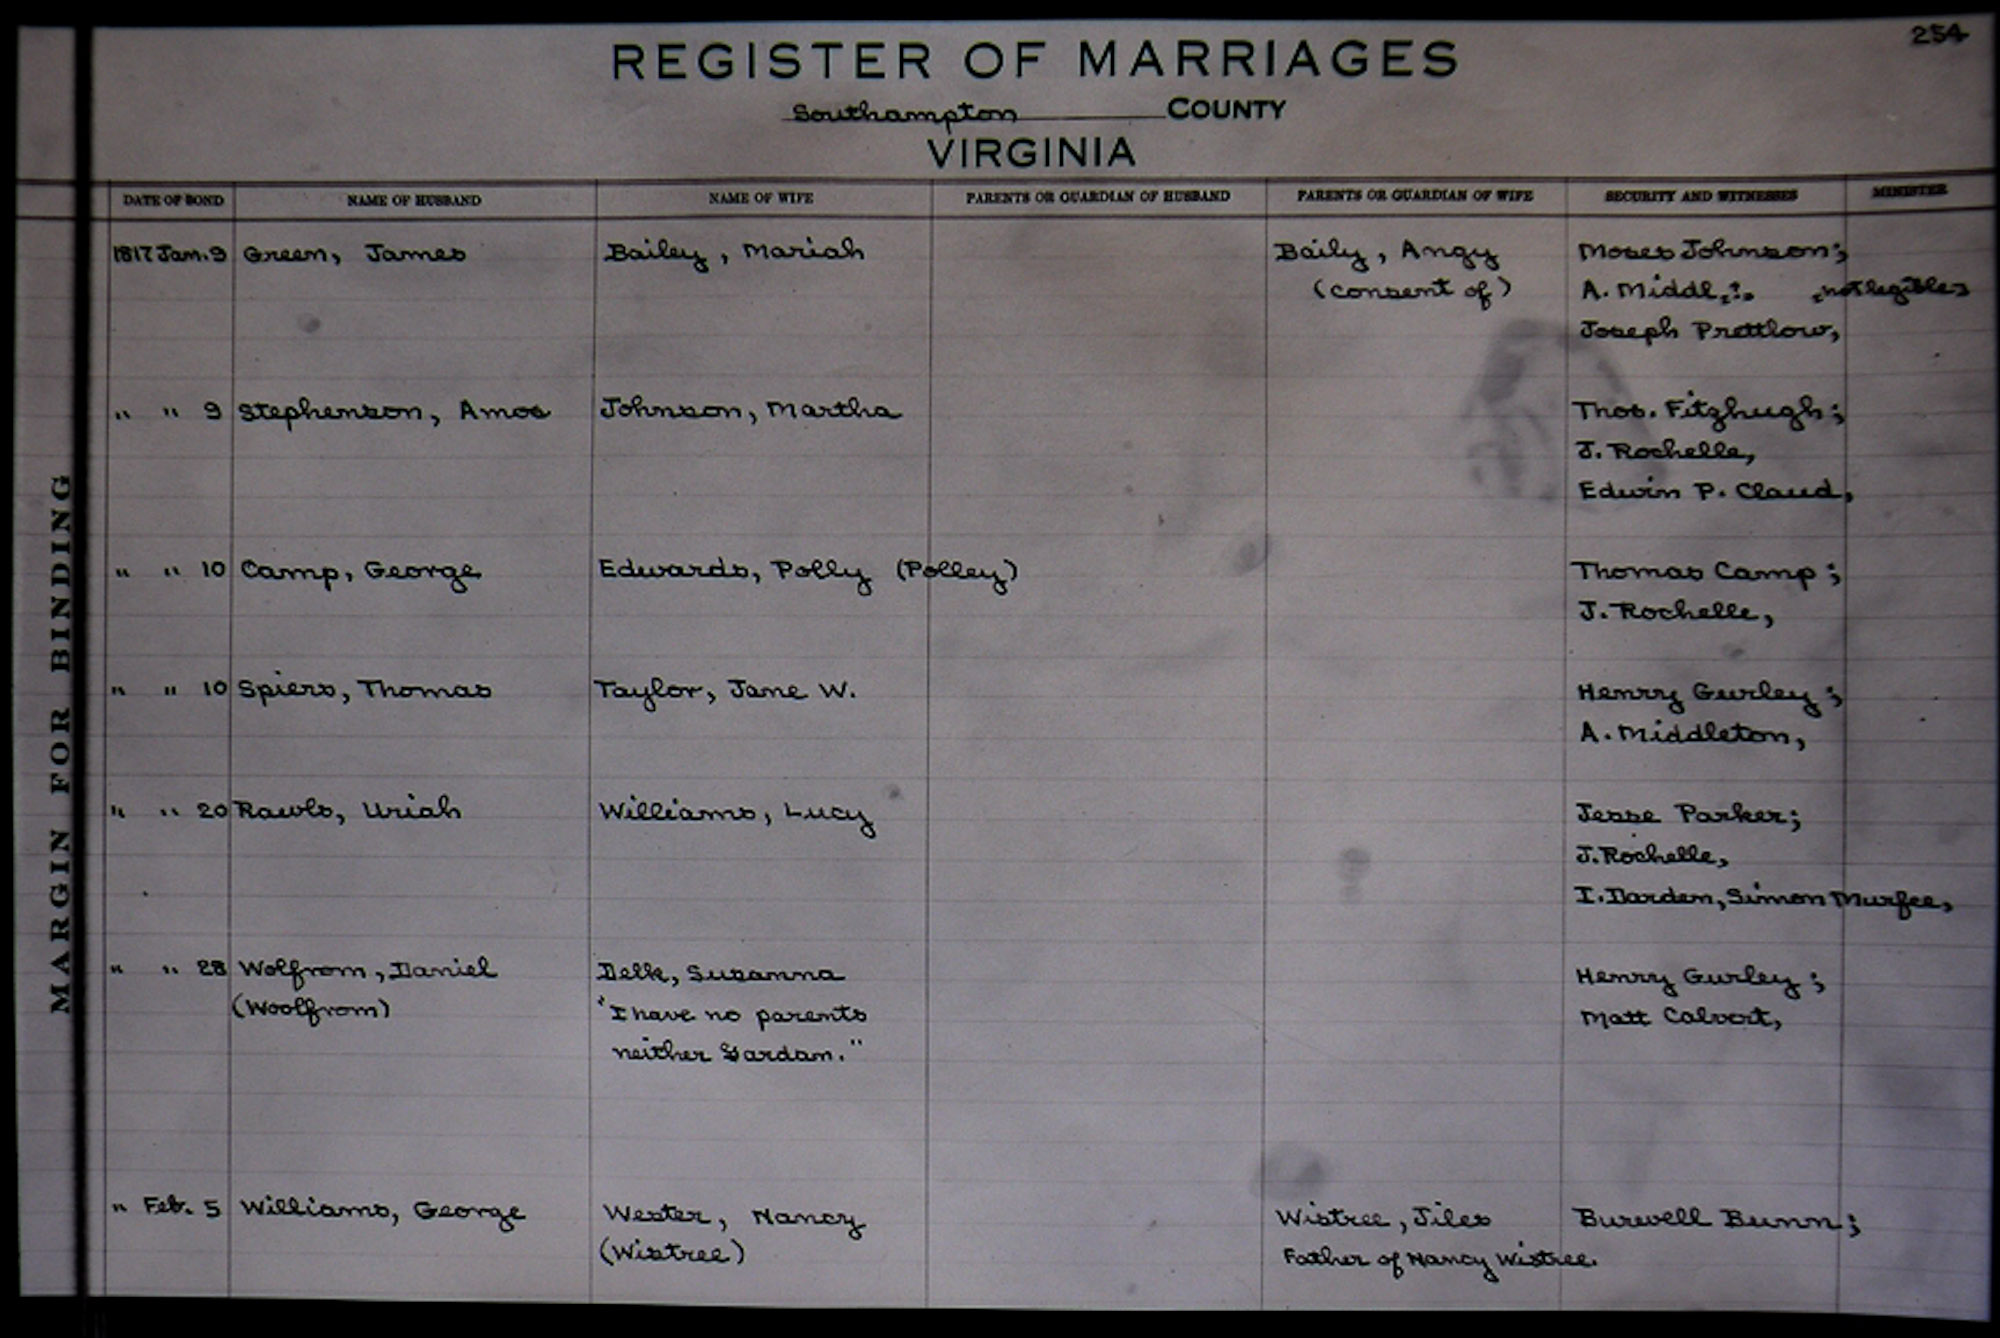 254
REGISTER OF MARRIAGES
Southampton COUNTY
VIRGINIA
DATE OF BOND NAME OF HUSBAND NAME OF WIFE PARENTS OR GUARDIAN OF HUSBAND PARENTS OR GUARDIAN OF WIFE SECURITY AND WITNESSES MINISTER
1817 Jan. 9 Green, James Bailey, Mariah Baily, Angy Moses Johnson;
(consent of) A. Middl, not legible
Joseph Prettlow,
" " 9 Stephenson, Amos Johnson, Martha Thos. Fitzhugh;
J. Rochelle,
Edwin P. Claud,
" " 10 Camp, George Edwards, Polly (Polley) Thomas Camp;
J. Rochelle,
" " 10 Spiers, Thomas Taylor, Jane W. Henry Gurley;
A. Middleton,
" " 20 Rawls, Uriah Williams, Lucy Jesse Parker;
J. Rochelle,
I. Darden, Simon Murfee,
" " 28 Wolfrom, Daniel Delk, Susanna Henry Gurley;
(Woolfrom) "I have no parents Matt Calvert,
neither Gardan."
" Feb. 5 Williams, George Wester, Nancy Wistree, Jiles Burwell Bunn;
(Wistree) Father of Nancy Wistree.
MARGIN FOR BINDING